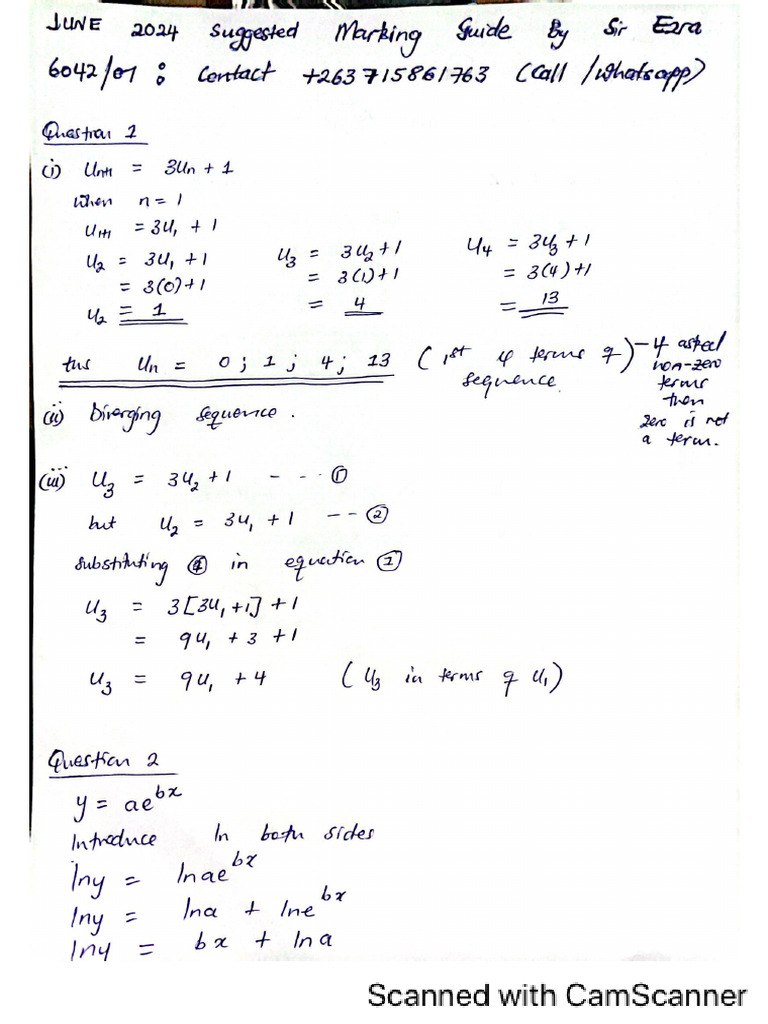 JUNE 2024 Suggested Marking Guide By Sir Ezra
6042/01 : Contact +263 715861763 (Call /Whatsapp)
Question 1
(i) Un+1 = 3Un + 1
when n = 1
U1+1 = 3U1 + 1
U2 = 3U1 + 1
= 3(0)+1
U2 = 1
U3 = 3U2 + 1
= 3(1)+1
= 4
U4 = 3U3 + 1
= 3(4)+1
= 13
tus Un = 0 ; 1 ; 4 ; 13 (1st 4 terms of sequence.)
- 4 asked
non-zero
terms
then
zero is not
a term.
(ii) Diverging sequence.
(iii) U3 = 3U2 + 1 - - - ①
but U2 = 3U1 + 1 - - ②
substituting in equation ①
U3 = 3[3U1+1] + 1
= 9U1 + 3 + 1
U3 = 9U1 + 4 (U3 in terms of U1)
Question 2
y = ae^bx
Introduce ln both sides
lny = lnae^bx
lny = lna + lne^bx
lny = bx + lna
Scanned with CamScanner